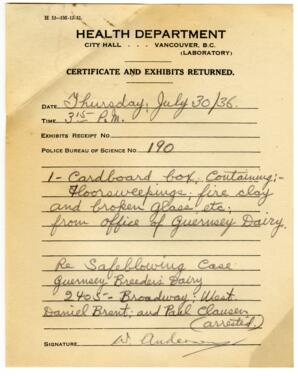 HEALTH DEPARTMENT
CITY HALL VANCOUVER, B.C.
(LABORATORY)
CERTIFICATE AND EXHIBITS RETURNED.
DATE Thursday, July 30/36.
TIME 3:15 P.M.
EXHIBITS RECEIPT NO.
POLICE BUREAU OF SCIENCE NO. 190
1 - Cardboard box, Containing:-
Floorsweepings, fire clay
and broken glass, etc;
from office of Guernsey Dairy.
Re Safeblowing Case
Guernsey Breeders Dairy
2405 - Broadway; West.
Daniel Brent; and Paul Clausen
(arrested.)
SIGNATURE